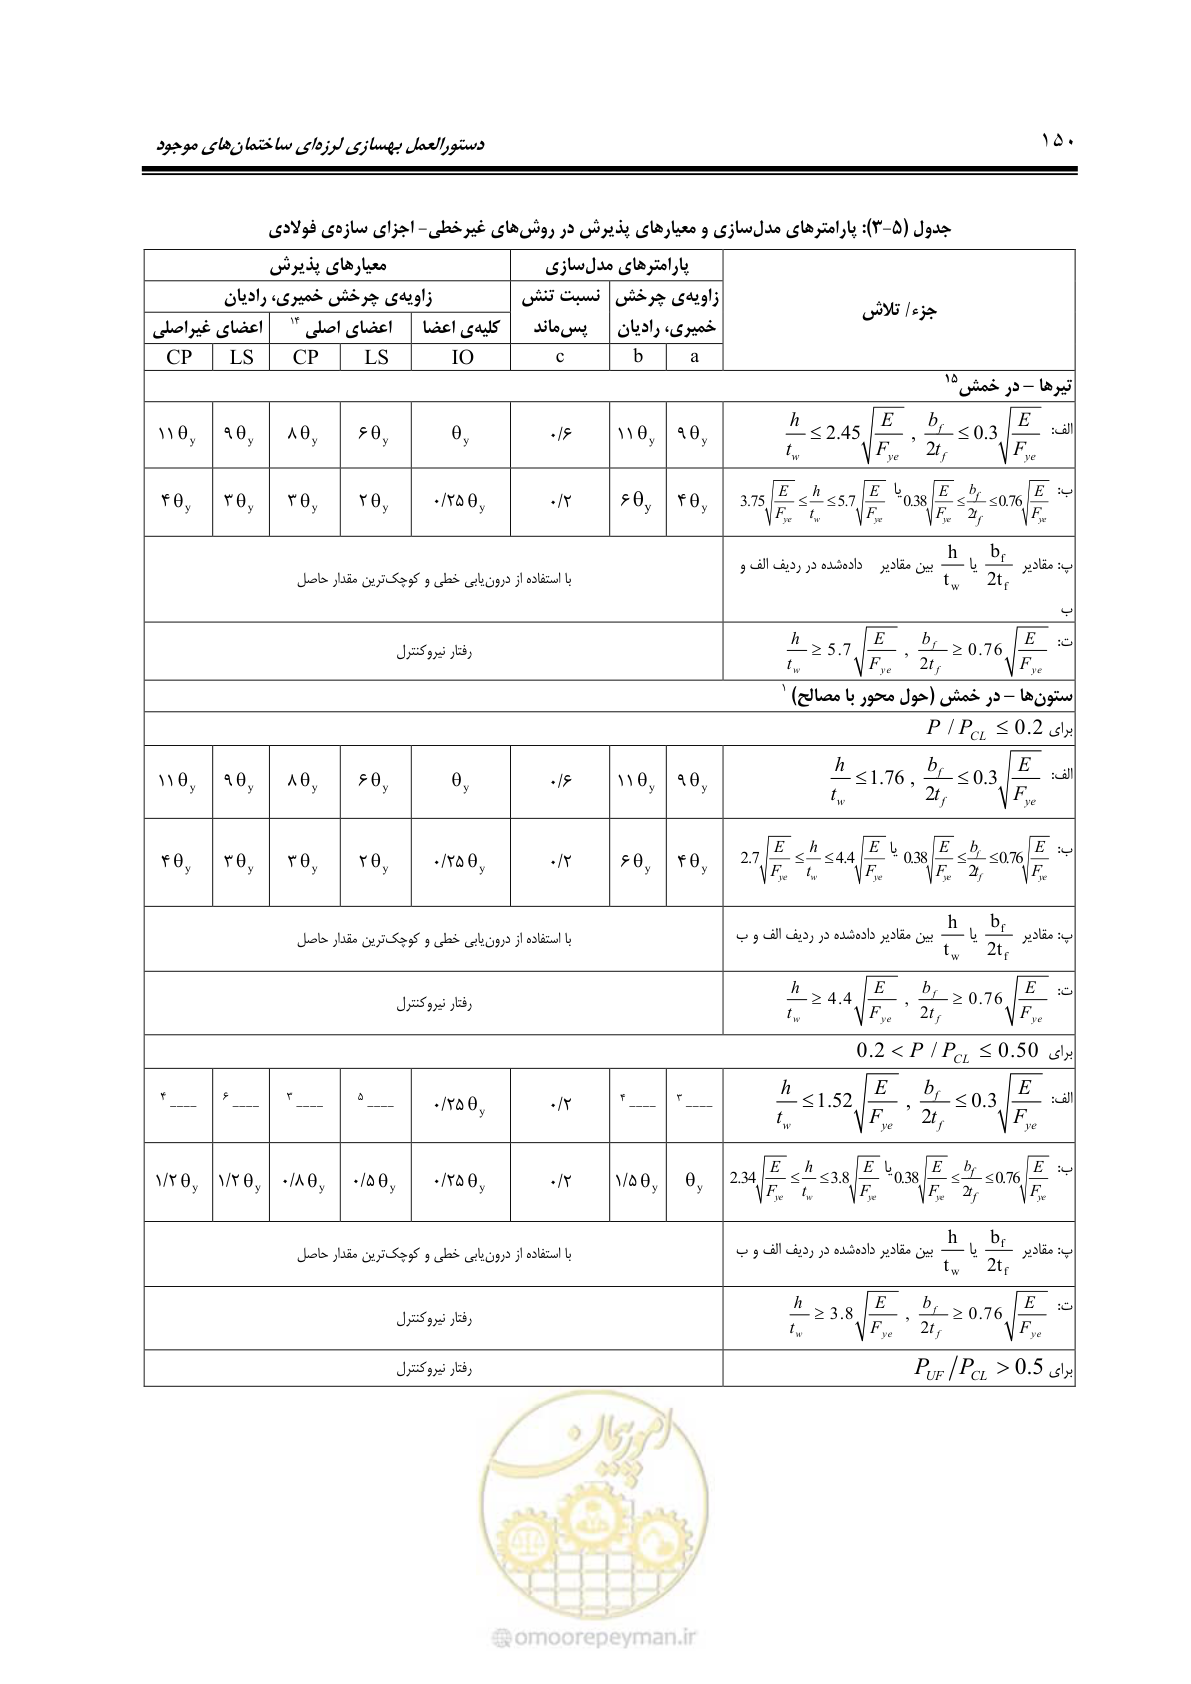 ۱۵۰ دستورالعمل بهسازی لرزه‌ای ساختمان‌های موجود
جدول (۵-۳): پارامترهای مدل‌سازی و معیارهای پذیرش در روش‌های غیرخطی- اجزای سازه‌ی فولادی
جزء/ تلاش پارامترهای مدل‌سازی معیارهای پذیرش
زاویه‌ی چرخش خمیری، رادیان نسبت تنش پس‌ماند زاویه‌ی چرخش خمیری، رادیان
کلیه‌ی اعضا اعضای اصلی ۱۴ اعضای غیراصلی
a b c IO LS CP LS CP
تیرها – در خمش ۱۵
الف: b_f/2t_f ≤ 0.3√(E/F_ye) , h/t_w ≤ 2.45√(E/F_ye) ۹θ_y ۱۱θ_y ۰/۶ θ_y ۶θ_y ۸θ_y ۹θ_y ۱۱θ_y
ب: 0.38√(E/F_ye) ≤ b_f/2t_f ≤ 0.76√(E/F_ye) یا 3.75√(E/F_ye) ≤ h/t_w ≤ 5.7√(E/F_ye) ۴θ_y ۶θ_y ۰/۲ ۰/۲۵θ_y ۲θ_y ۳θ_y ۳θ_y ۴θ_y
پ: مقادیر b_f/2t_f یا h/t_w بین مقادیر داده‌شده در ردیف الف و ب با استفاده از درون‌یابی خطی و کوچک‌ترین مقدار حاصل
ت: b_f/2t_f ≥ 0.76√(E/F_ye) , h/t_w ≥ 5.7√(E/F_ye) رفتار نیروکنترل
ستون‌ها – در خمش (حول محور با مصالح) ۱
برای P / P_CL ≤ 0.2
الف: b_f/2t_f ≤ 0.3√(E/F_ye) , h/t_w ≤ 1.76 ۹θ_y ۱۱θ_y ۰/۶ θ_y ۶θ_y ۸θ_y ۹θ_y ۱۱θ_y
ب: 0.38√(E/F_ye) ≤ b_f/2t_f ≤ 0.76√(E/F_ye) یا 2.7√(E/F_ye) ≤ h/t_w ≤ 4.4√(E/F_ye) ۴θ_y ۶θ_y ۰/۲ ۰/۲۵θ_y ۲θ_y ۳θ_y ۳θ_y ۴θ_y
پ: مقادیر b_f/2t_f یا h/t_w بین مقادیر داده‌شده در ردیف الف و ب با استفاده از درون‌یابی خطی و کوچک‌ترین مقدار حاصل
ت: b_f/2t_f ≥ 0.76√(E/F_ye) , h/t_w ≥ 4.4√(E/F_ye) رفتار نیروکنترل
برای 0.2 < P / P_CL ≤ 0.50
الف: b_f/2t_f ≤ 0.3√(E/F_ye) , h/t_w ≤ 1.52√(E/F_ye) ____ ۳ ____ ۴ ۰/۲ ۰/۲۵θ_y ____ ۵ ____ ۳ ____ ۶ ____ ۴
ب: 0.38√(E/F_ye) ≤ b_f/2t_f ≤ 0.76√(E/F_ye) یا 2.34√(E/F_ye) ≤ h/t_w ≤ 3.8√(E/F_ye) θ_y ۱/۵θ_y ۰/۲ ۰/۲۵θ_y ۰/۵θ_y ۰/۸θ_y ۱/۲θ_y ۱/۲θ_y
پ: مقادیر b_f/2t_f یا h/t_w بین مقادیر داده‌شده در ردیف الف و ب با استفاده از درون‌یابی خطی و کوچک‌ترین مقدار حاصل
ت: b_f/2t_f ≥ 0.76√(E/F_ye) , h/t_w ≥ 3.8√(E/F_ye) رفتار نیروکنترل
برای P_UF/P_CL > 0.5 رفتار نیروکنترل
امور پیمان
@omoorepeyman.ir